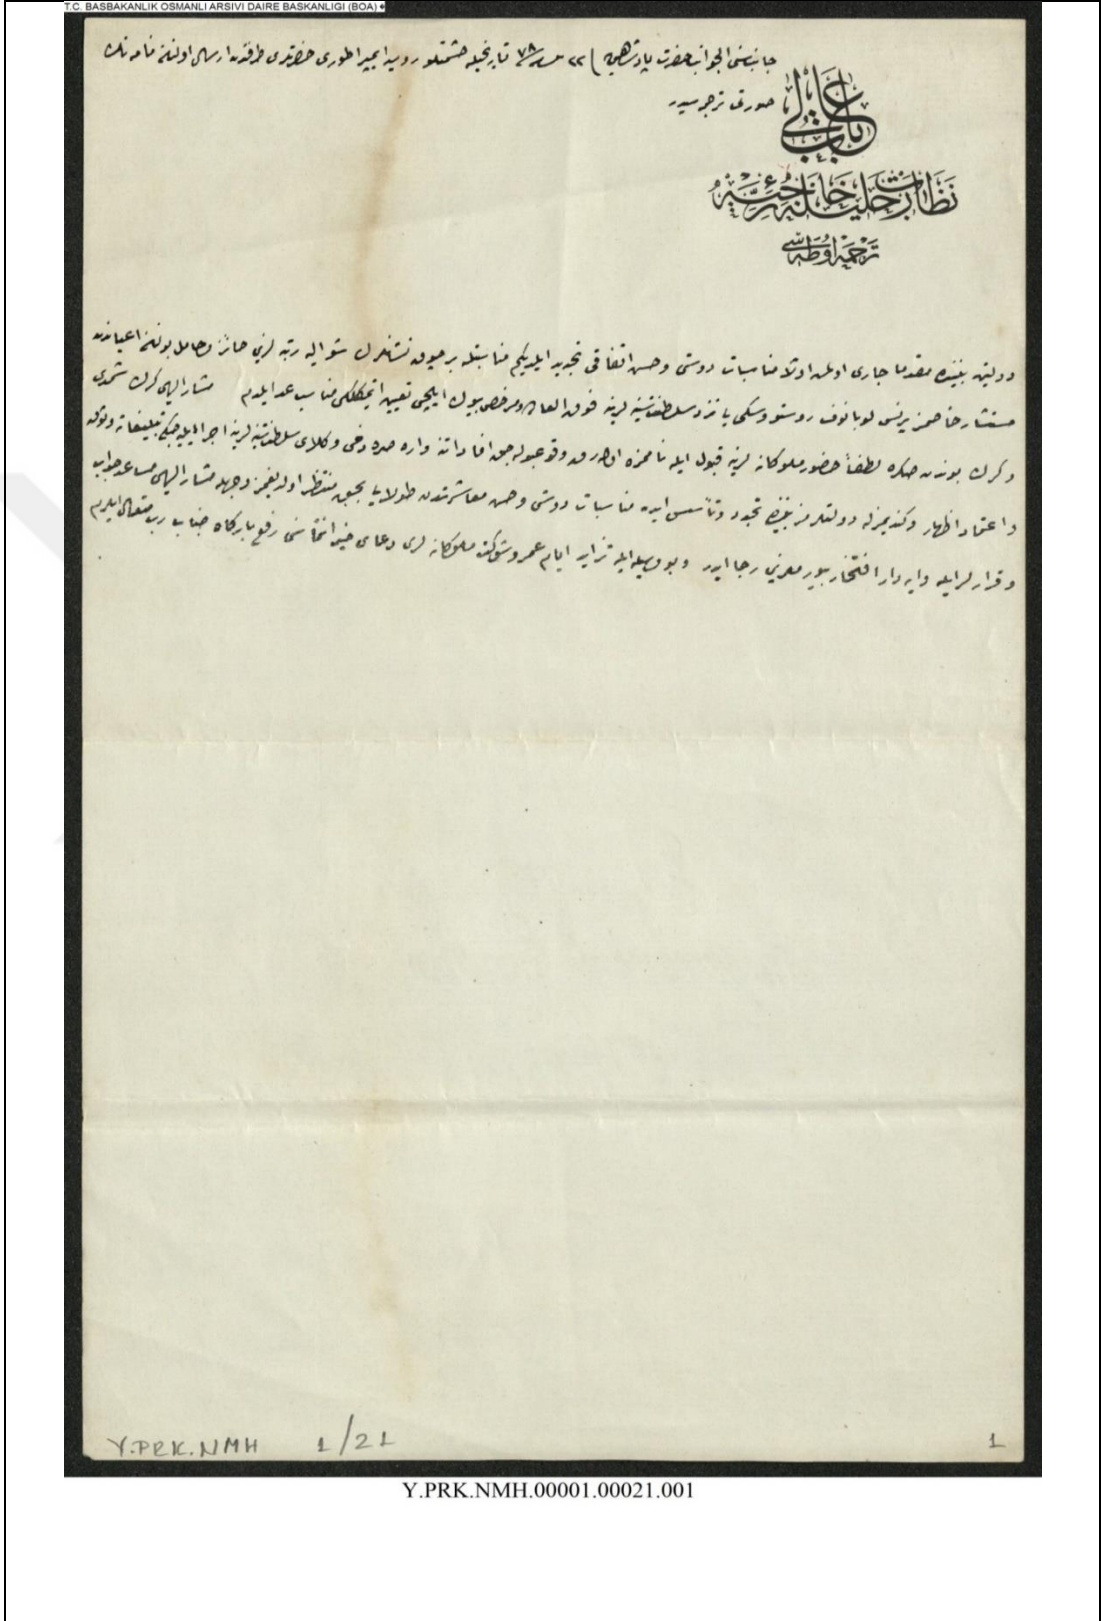 T.C. BASBAKANLIK OSMANLI ARSIVI DAIRE BASKANLIGI (BOA)
جانب سنی الجوانب حضرت پادشاهی یه ٢٢ ٧٨ تاریخیله حشمتلو روسیه ایمپراطوری حضرتلری طرفندن ارسال اولنان نامه نك
صورت ترجمه سیدر
باب عالی
نظارت جلیله خارجیه
ترجمه اوطه سی
دولتین بیننده مقدما جاری اولان مناسبات دوستی و حسن اتفاقی تجدید ایلدیكم مناسبتله بر چوق نشانلرك شوالیه رتبه لرینی حائز و حامل بولنان اعیاندن
مستشار خاصمز پرنس لوبانوف روستوسكی یی نزد سلطنتینه لرینه فوق العاده و مرخص بیوك ایلچی تعیین ایتمكلكی مناسب عد ایلدم مشار الیهی كرك شمدی
و كرك بوندن صكره لطفا حضور ملوكانه لرینه قبول ایله نامزه اوله رق وقوعبوله جق افاداتنه و اره صره دخی وكلای سلطنتینه لرینه اجرا ایلیه جكی تبلیغاته وثوق
و اعتماد اظهار و كندیمزله دولتلرمز بیننده تجدد و تأسس ایدن مناسبات دوستی و حسن معاشرتدن طولایی بحق منتظر اولدیغمز وجهله مشار الیهی مساعد جواب
و قرار لر ایله وایه دار افتخار بیورملرینی رجا ایدر و بو وسیله ایله تزاید ایام عمر و شوكت ملوكانه لری دعای خیر انتماسنی رفع بارگاه جناب رب متعال ایلرم
Y.PRK.NMH 1/21
1
Y.PRK.NMH.00001.00021.001